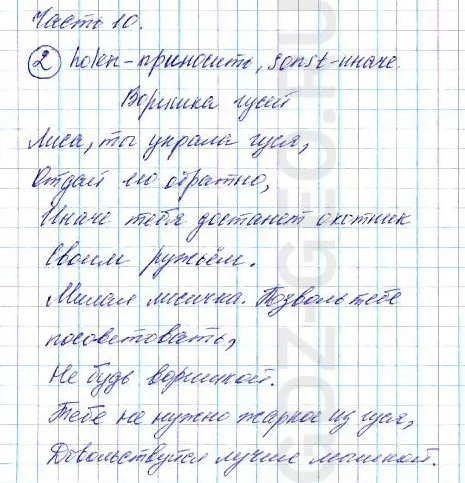 Часть 10.
② holen-приносить, sonst-иначе.
Воришка гусей
Лиса, ты украла гуся,
Отдай его обратно,
Иначе тебя достанет охотник
Своим ружьём.
Милая лисичка. Позволь тебе
посоветовать,
Не будь воришкой.
Тебе не нужно жаркое из гуся,
Довольствуйся лучше мышкой.
GDZ-GO.RU